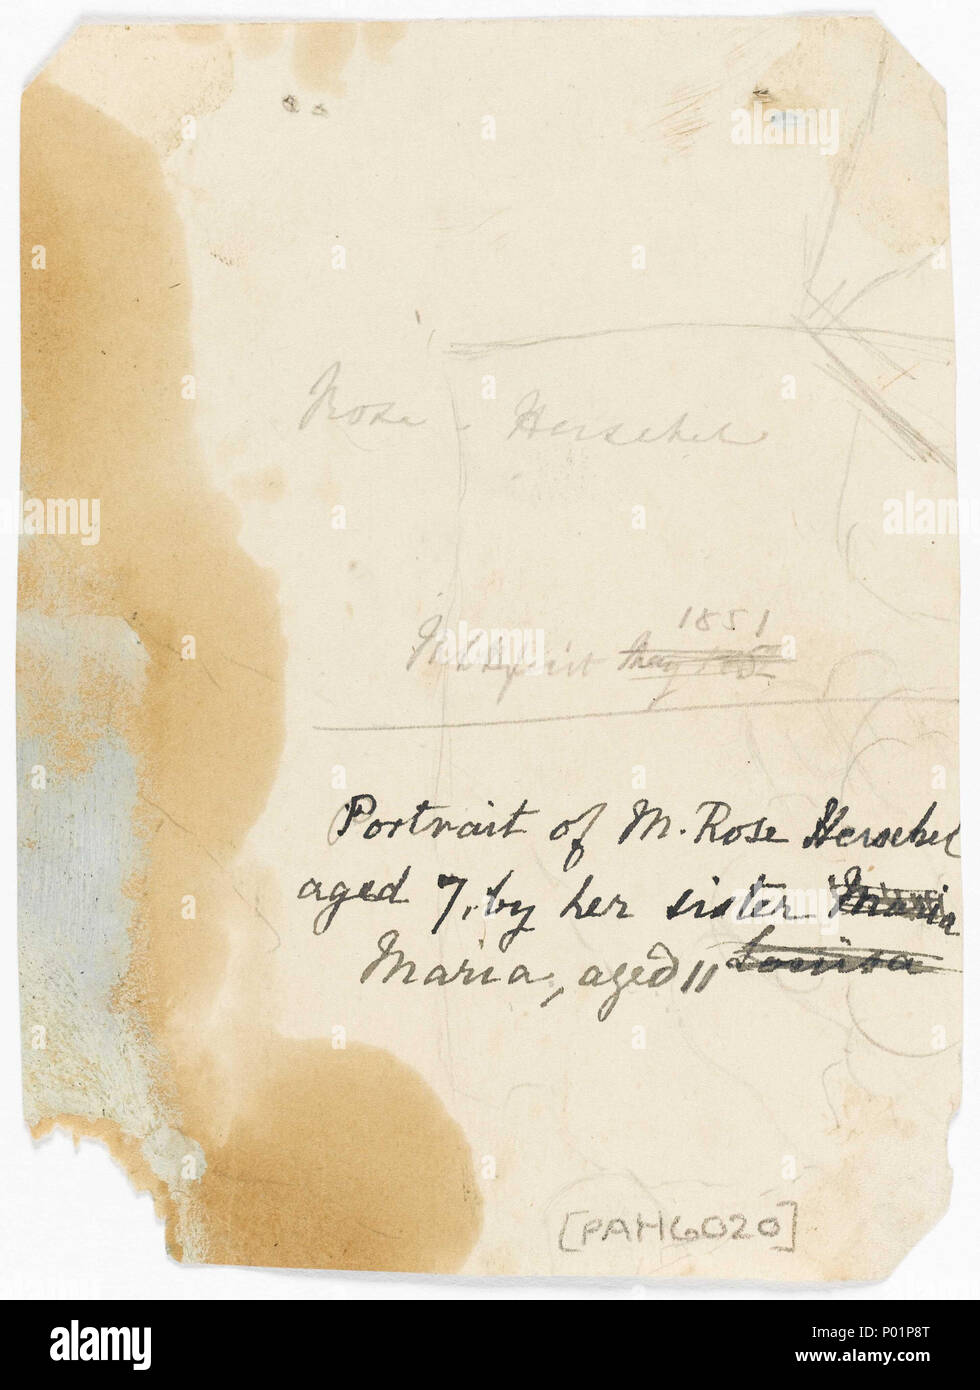 Rose Herschel
1851
May
Portrait of M. Rose Herschel
aged 7, by her sister Maria
Maria, aged 11 Louisa
[PAH6020]
alamy
a
alamy
Image ID: P01P8T
www.alamy.com